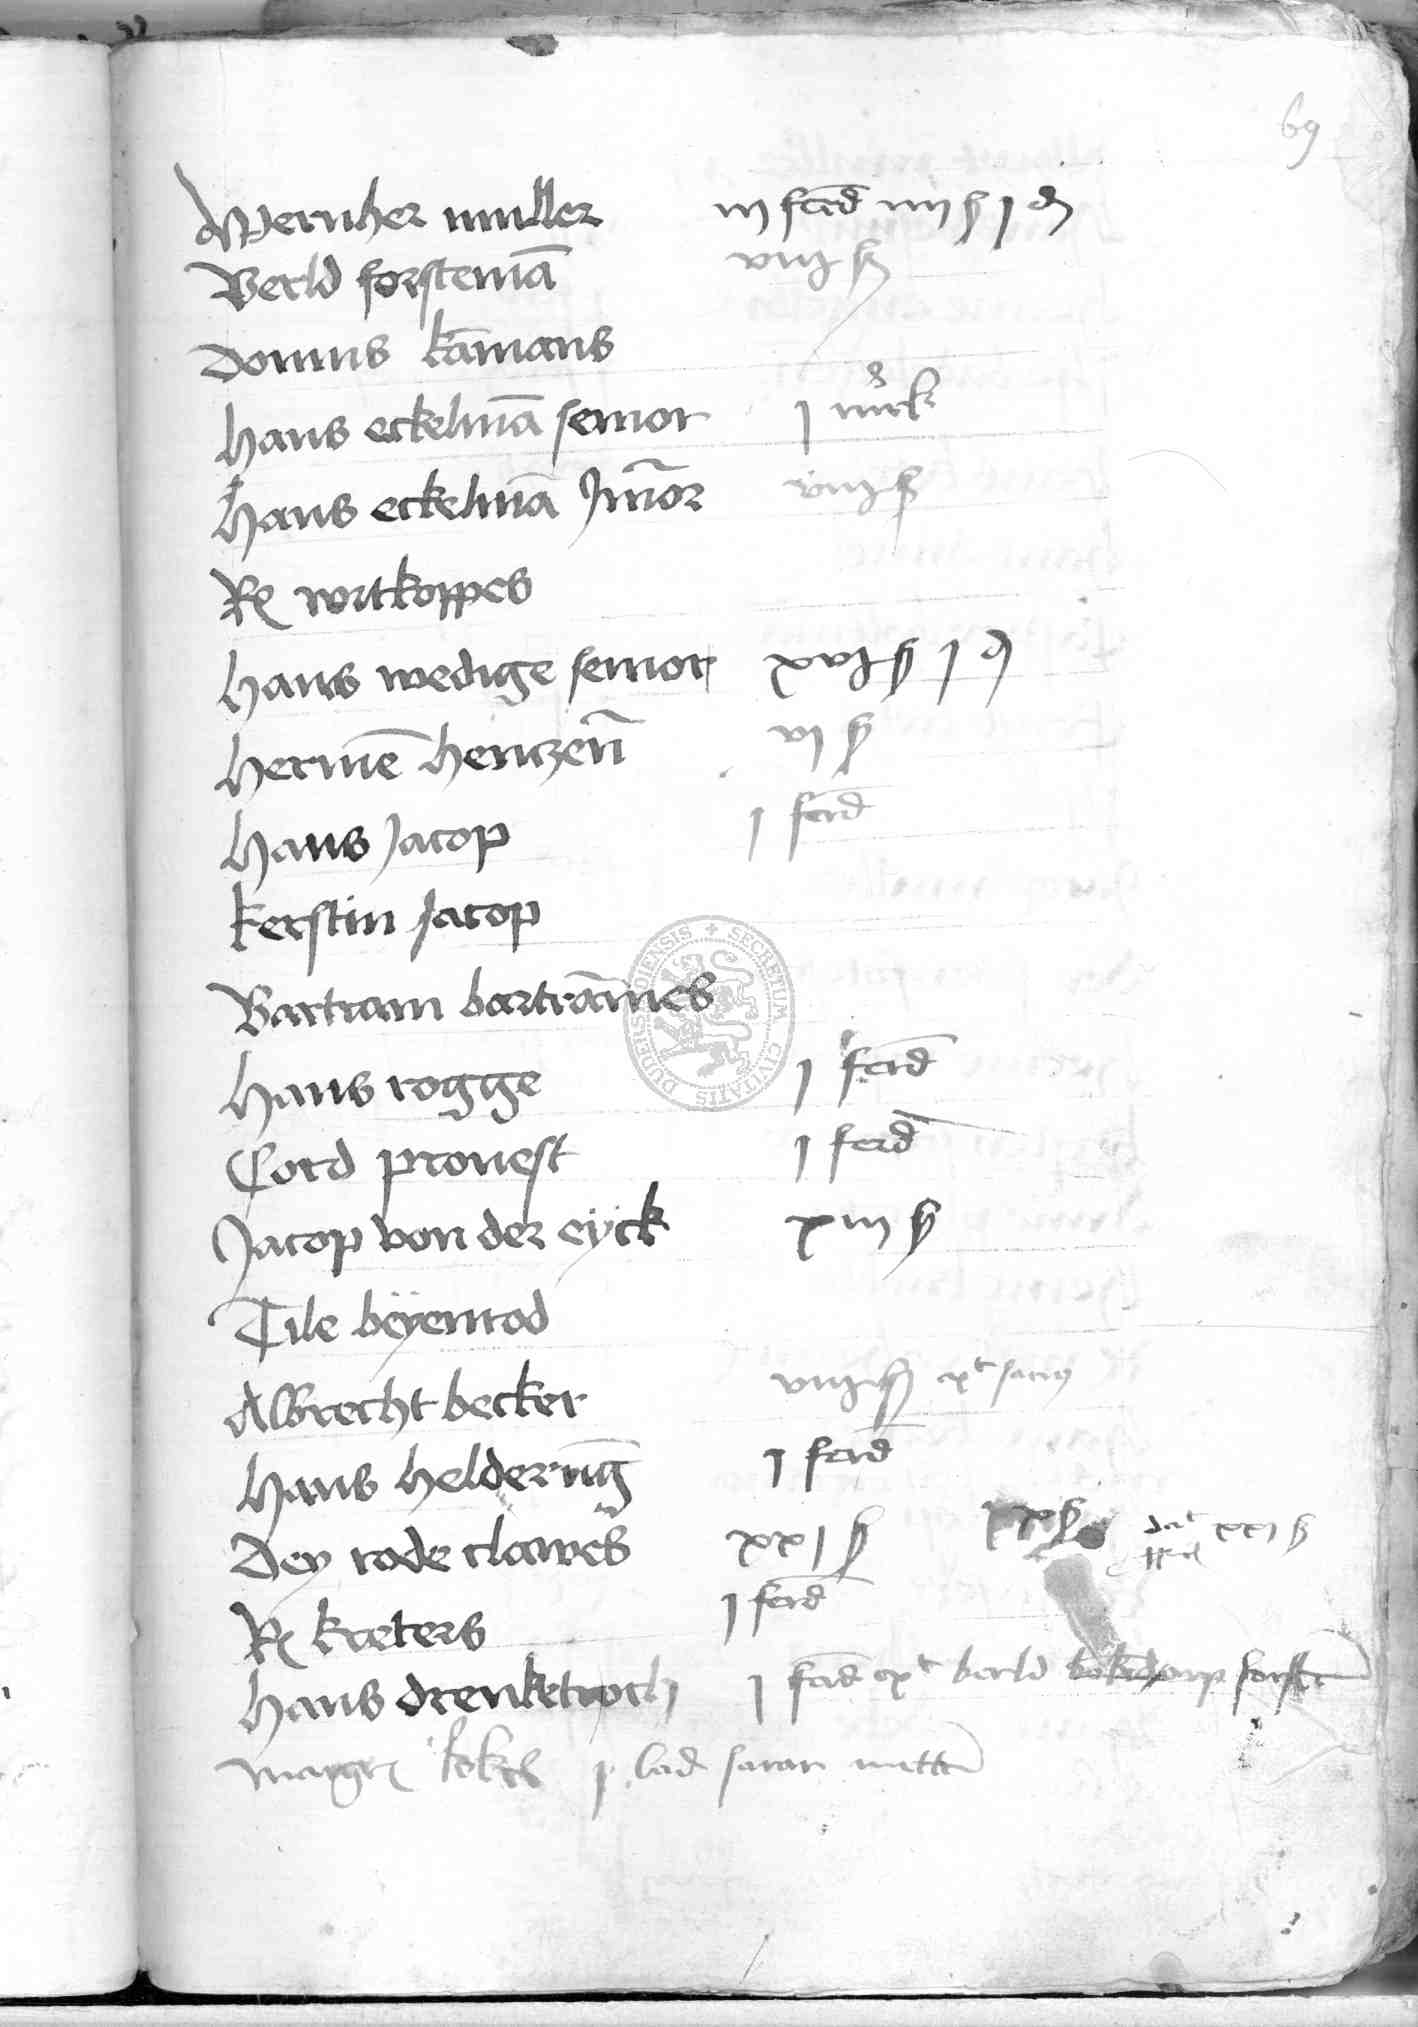 69
Wernher muller iij ferd iiij ß j d
Berld forstemā
Domus kāmans
hans eckelmā senior j mrk
hans eckelmā Junior viij ß
Rx witkoppes
hans wedige senior xvij ß j d
hermē henczen̄ vj ß
hans Jacop j ferd
kerstin Jacop
Bartram bartrāmes
hans rogge j ferd
Cord prouest j ferd
Jacop von der eÿck xiij ß
Tile beÿenrod
Albrecht becker viij ß
hans helderūg j ferd
Dey rode clawes xxj ß xxj ß
Rx kreters j ferd
hans drenketroch j ferd berld
DUDERSTADIENSIS + SECRETUM CIVITATIS